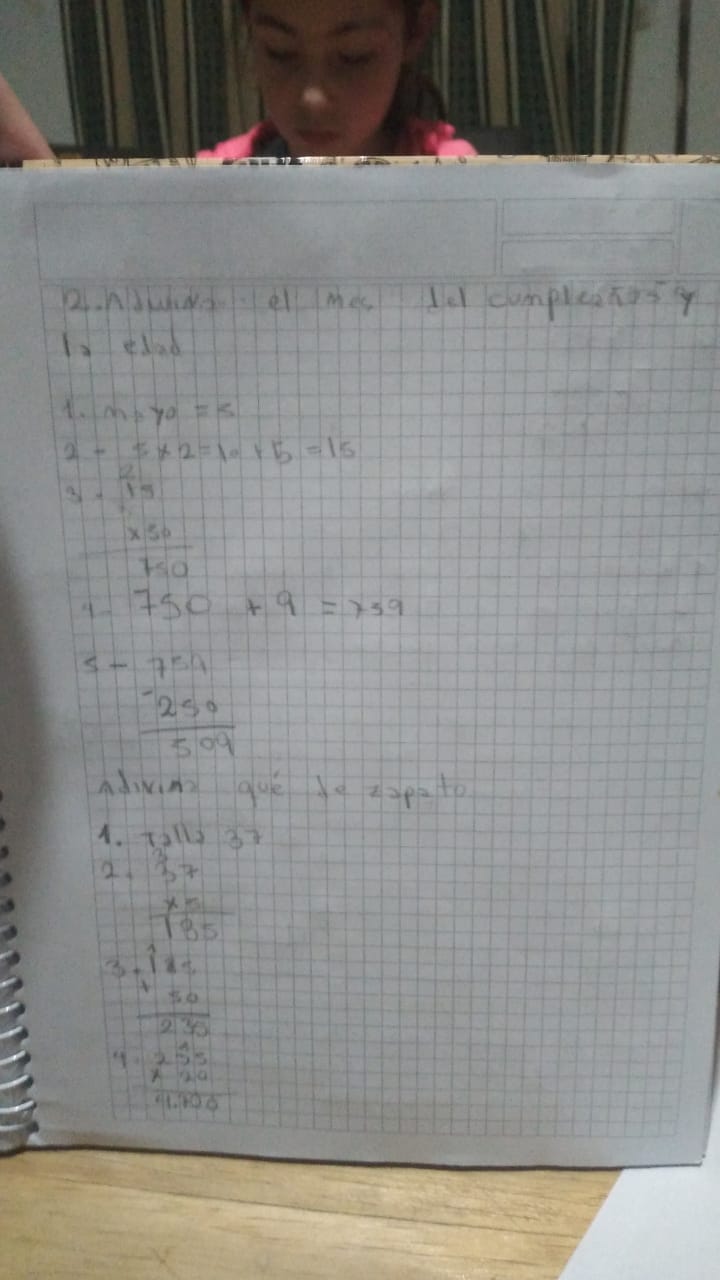 2. Adivina el mes del cumpleaños y
la edad
1. mayo = 5
2 - 5 x 2 = 10 + 5 = 15
2
3 - 15
x 50
750
4 - 750 + 9 = 759
5 - 759
- 250
509
Adivina qué de zapato
1. Talla 37
3
2. 37
x 5
185
1
3. 185
+ 50
235
4.
x 20
4.700